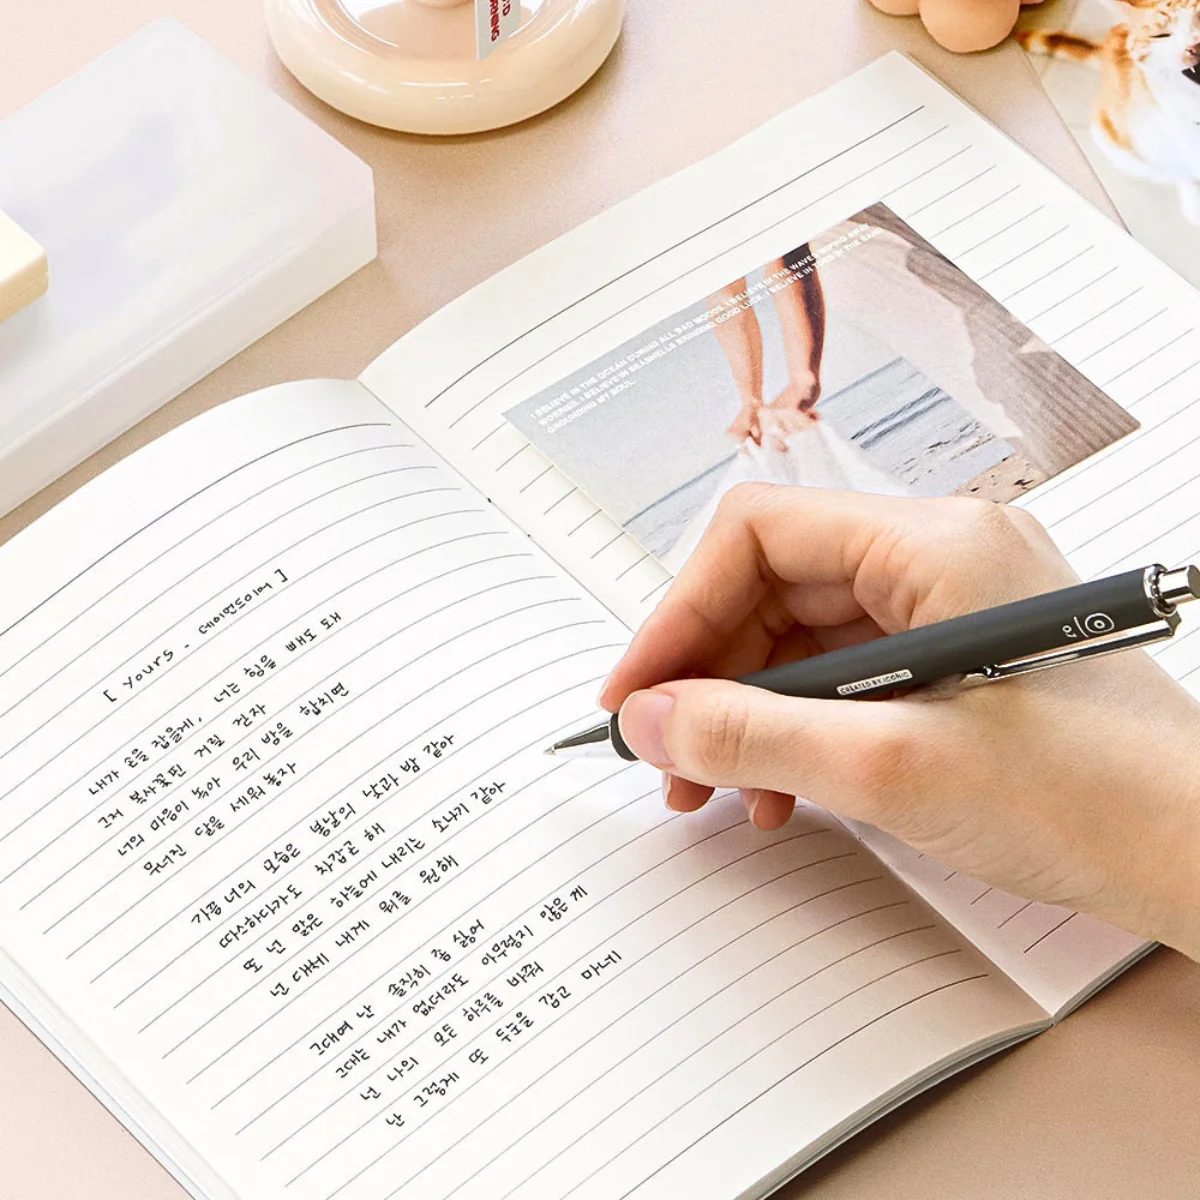 [ yours - 데이먼드이어 ]
내가 손을 잡을게, 너는 힘을 빼도 돼
그저 복사꽃핀 거릴 걷자
너의 마음이 녹아 우리 밤을 합치면
무너진 달을 세워놓자
가끔 너의 모습은 봄날의 낮과 밤 같아
따스하다가도 차갑곤 해
또 넌 맑은 하늘에 내리는 소나기 같아
넌 대체 내게 뭐를 원해
그대여 난 솔직히 좀 싫어
그대는 내가 없더라도 아무렇지 않은 게
넌 나의 모든 하루를 바꿔
난 그렇게 또 두눈을 감고 마네
I BELIEVE IN THE OCEAN CURING ALL BAD MOODS. I BELIEVE IN THE WAVES WIPING AWAY
WORRIES. I BELIEVE IN SEASHELLS BRINGING GOOD LUCK. I BELIEVE IN TOES IN THE SAND
GROUNDING MY SOUL.
CREATED BY ICONIC
0.7